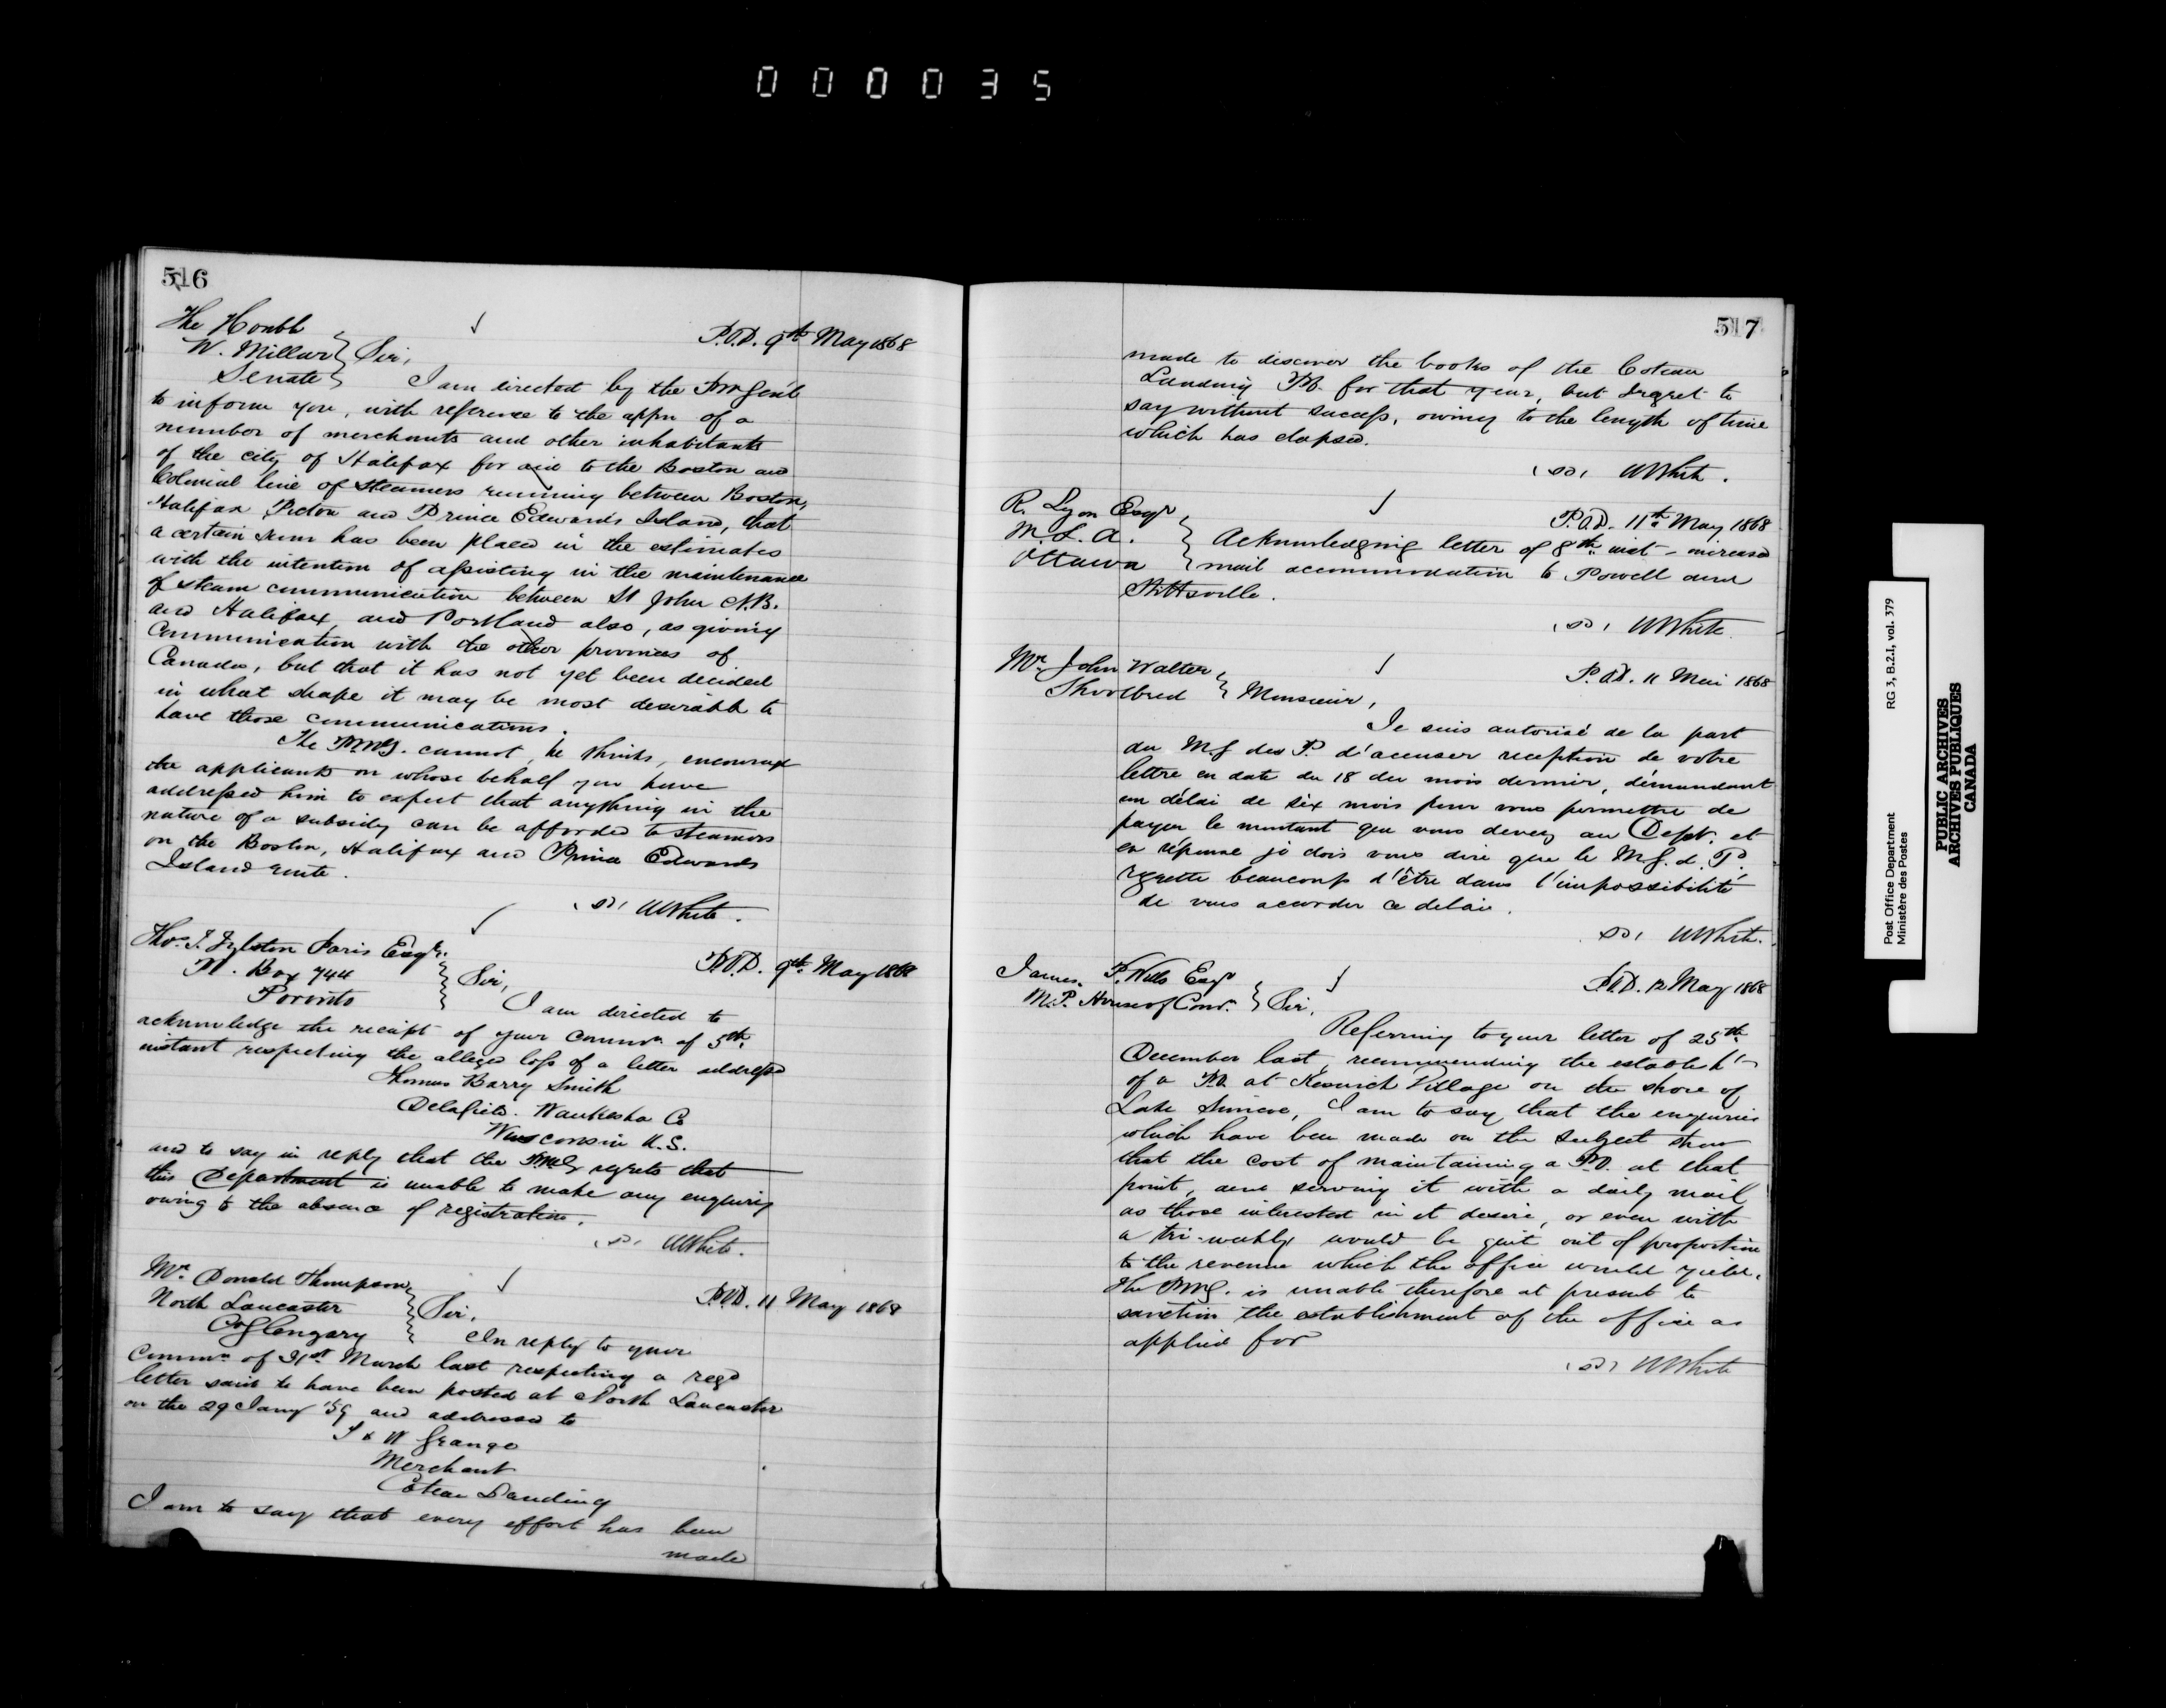 000035
516
The Honble
W. Millar
Senate
Sir,
P.O.D. 9th May 1868
I am directed by the PMGen'l
to inform you, with reference to the appn of a
number of merchants and other inhabitants
of the city of Halifax for aid to the Boston and
Colonial line of steamers running between Boston,
Halifax Pictou and Prince Edwards Island, that
a certain sum has been placed in the estimates
with the intention of assisting in the maintenance
of steam communication between St John N.B.
and Halifax, and Portland also, as giving
Communication with the other provinces of
Canada, but that it has not yet been decided
in what shape it may be most desirable to
have those communications.
The P.M.G. cannot, he thinks, encourage
the applicants on whose behalf you have
addressed him to expect that anything in the
nature of a subsidy can be afforded to steamers
on the Boston, Halifax and Prince Edwards
Island route.
(sd) WWhite.
Thos. J. Paris Esqr.
P.O. Box 744
Toronto
Sir,
P.O.D. 9th May 1868
I am directed to
acknowledge the receipt of your Commn. of 5th
instant respecting the alleged loss of a letter addressed
Thomas Barry Smith
Delafield. Waukesha Co
Wisconsin U.S.
and to say in reply that the PMG regrets that
this Department is unable to make any enquiry
owing to the absence of registration.
(sd) WWhite.
Mr. Donald Thompson
North Lancaster
Co Glengary
Sir,
P.O.D. 11 May 1868
In reply to your
Commn. of 31st March last respecting a regd
letter said to have been posted at North Lancaster
on the 29 Jany '59 and addressed to
J & W Grange
Merchant
Coteau Landing
I am to say that every effort has been
made
517
made to discover the books of the Coteau
Landing P.O. for that year, but I regret to
say without success, owing to the length of time
which has elapsed.
(sd) WWhite.
R. Lyon Esqr
M.L.A.
Ottawa
P.O.D. 11th May 1868
Acknowledging letter of 8th inst - increased
mail accommodation to Powell and
Stittsville.
(sd) WWhite.
Mr. John Walter
Shoolbred
Monsieur,
P.O.D. 11 Mai 1868
Je suis autorisé de la part
du M.G. des P. d'accuser reception de votre
lettre en date du 18 du mois dernier, démandant
un délai de six mois pour vous permettre de
payer le montant que vous devez au Dept. et
en réponse je dois vous dire que le M.G. d. P.
regrette beaucoup d'être dans l'impossibilité
de vous accorder ce delai.
(sd) WWhite.
James P. Wells Esqr
M.P. House of Com.
Sir,
P.O.D. 12 May 1868
Referring to your letter of 25th
December last, recommending the establisht
of a P.O. at Keswick Village on the shore of
Lake Simcoe, I am to say that the enquiries
which have been made on the subject show
that the cost of maintaining a P.O. at that
point, and serving it with a daily mail
as those interested in it desire, or even with
a tri-weekly would be quit out of proportion
to the revenue which the office would yield.
The P.M.G. is unable therefore at present to
sanction the establishment of the office as
applied for
(sd) WWhite
Post Office Department
Ministère des Postes
RG 3, B.2.I, vol. 379
PUBLIC ARCHIVES
ARCHIVES PUBLIQUES
CANADA